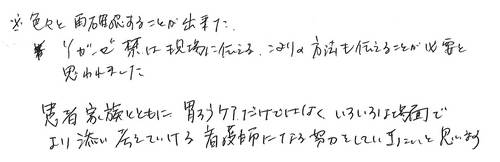 ※ 色々と再確認することが出来た。
※ Yガーゼ 禁は現場に伝える。こよりの方法も伝えることが必要と
思われました
患者家族とともに 胃ろうケアだけではなく いろいろな場面で
より添い 支えていける 看護師になる努力をしていきたいと思います